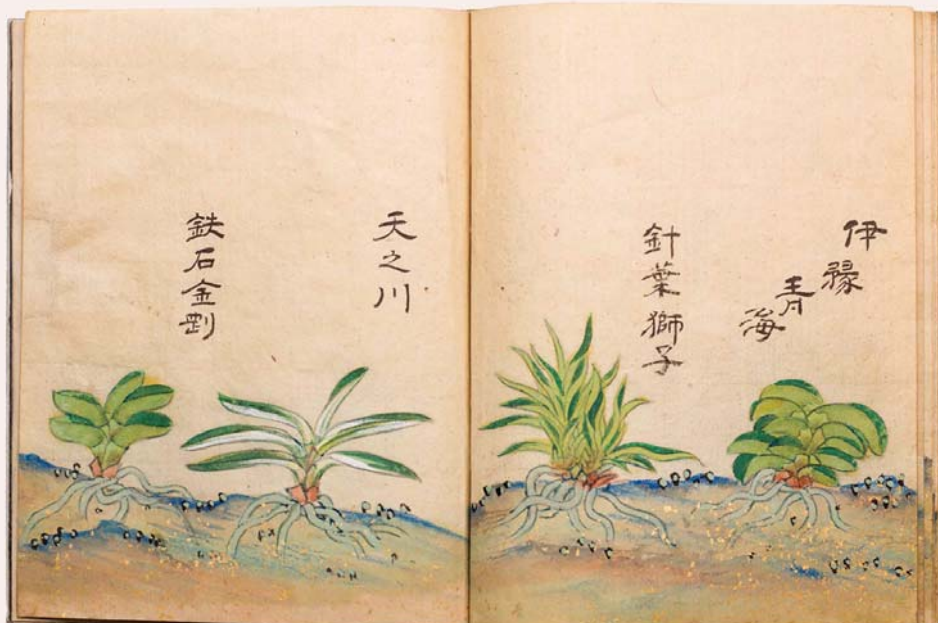 伊豫青海
針葉獅子
天之川
鉄石金剛